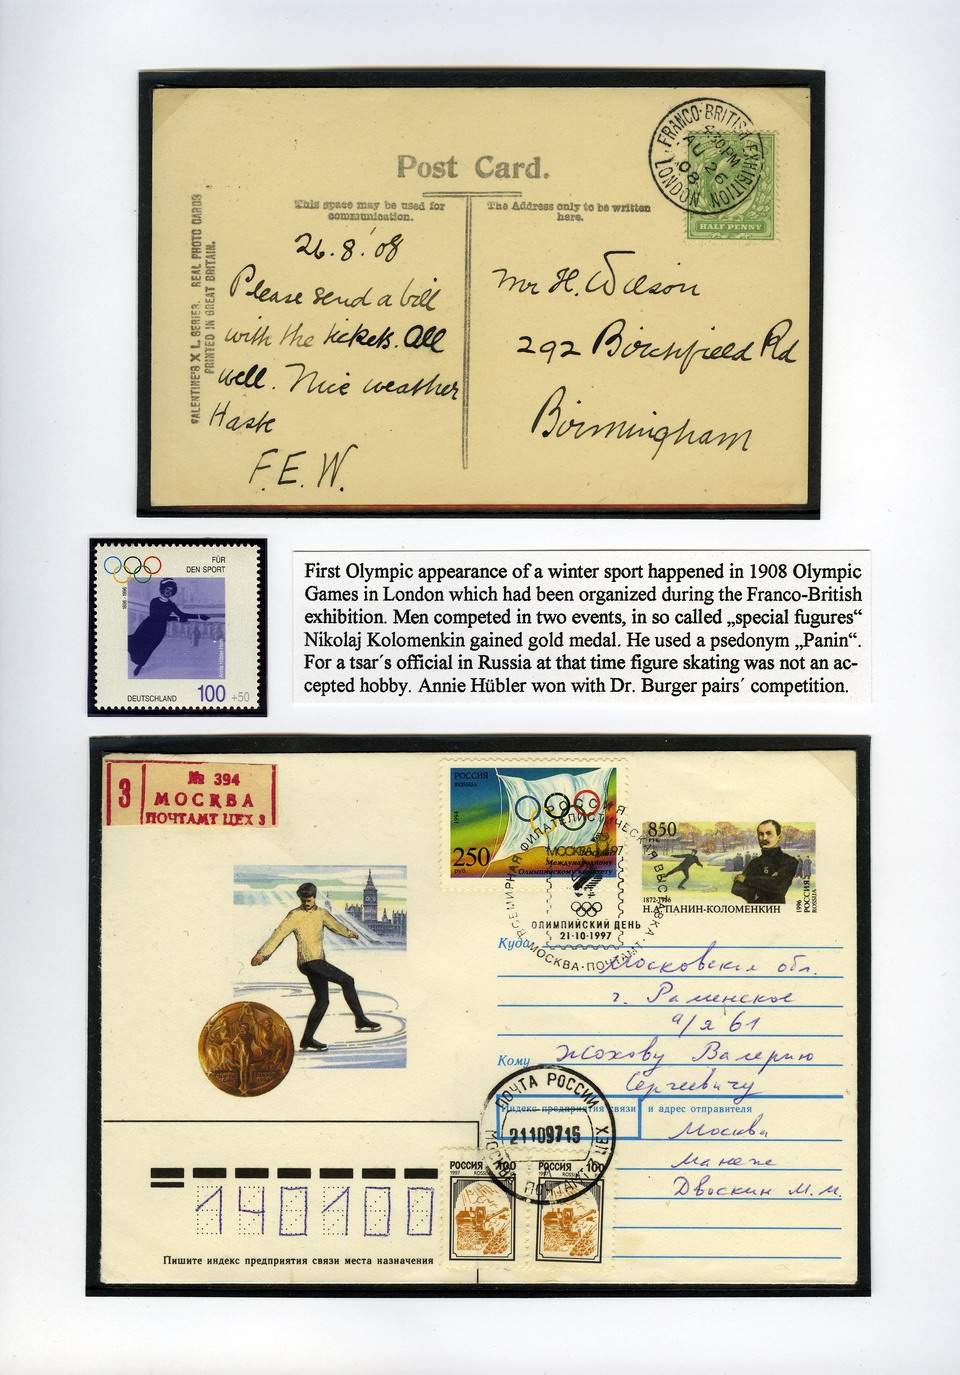 Post Card.
This space may be used for
communication.
The Address only to be written
here.
VALENTINE'S X L SERIES. REAL PHOTO CARDS
PRINTED IN GREAT BRITAIN.
FRANCO-BRITISH EXHIBITION
4.30 PM
AU 26
08
LONDON
HALF PENNY
26.8.'08
Please send a bill
with the tickets. All
well. Nice weather
Haste
F.E.W.
Mr H. Wilson
292 Birchfield Rd
Birmingham
FÜR
DEN SPORT
1896 - 1996
Annie Hübler-Horn
DEUTSCHLAND 100 +50
First Olympic appearance of a winter sport happened in 1908 Olympic
Games in London which had been organized during the Franco-British
exhibition. Men competed in two events, in so called „special fugures“
Nikolaj Kolomenkin gained gold medal. He used a psedonym „Panin“.
For a tsar´s official in Russia at that time figure skating was not an ac-
cepted hobby. Annie Hübler won with Dr. Burger pairs´ competition.
З
№ 394
МОСКВА
ПОЧТАМТ ЦЕХ 3
РОССИЯ
ROSSIJA
1994
250
руб.
Международному
Олимпийскому комитету
РОССИЯ
ВСЕМИРНАЯ ФИЛАТЕЛИСТИЧЕСКАЯ ВЫСТАВКА
МОСКВА 97
ОЛИМПИЙСКИЙ ДЕНЬ
21-10-1997
МОСКВА-ПОЧТАМТ
850
1872-1956
Н.А.ПАНИН-КОЛОМЕНКИН
1996 РОССИЯ
ROSSIJA
Куда Московская обл.
г. Раменское
а/я 61
Кому Жохову Валерию
Сергеевичу
Индекс предприятия связи и адрес отправителя
Москва
Манеж
Двоскин М.М.
ПОЧТА РОССИИ
21109715
МОСКВА ПОЧТАМТ
ЦЕХ
РОССИЯ 100
1997 ROSSIJA
РОССИЯ 100
1997 ROSSIJA
140100
Пишите индекс предприятия связи места назначения